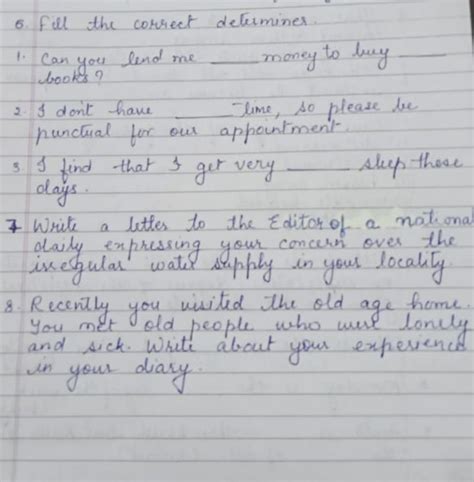 6. Fill the correct determiner.
1. Can you lend me ____ money to buy ____
books?
2. I don't have ____ time, so please be
punctual for our appointment.
3 I find that I get very ____ sleep these
days.
7 Write a letter to the Editor of a national
daily expressing your concern over the
irregular water supply in your locality.
8. Recently you visited the old age home.
You met old people who were lonely
and sick. Write about your experience
in your diary.